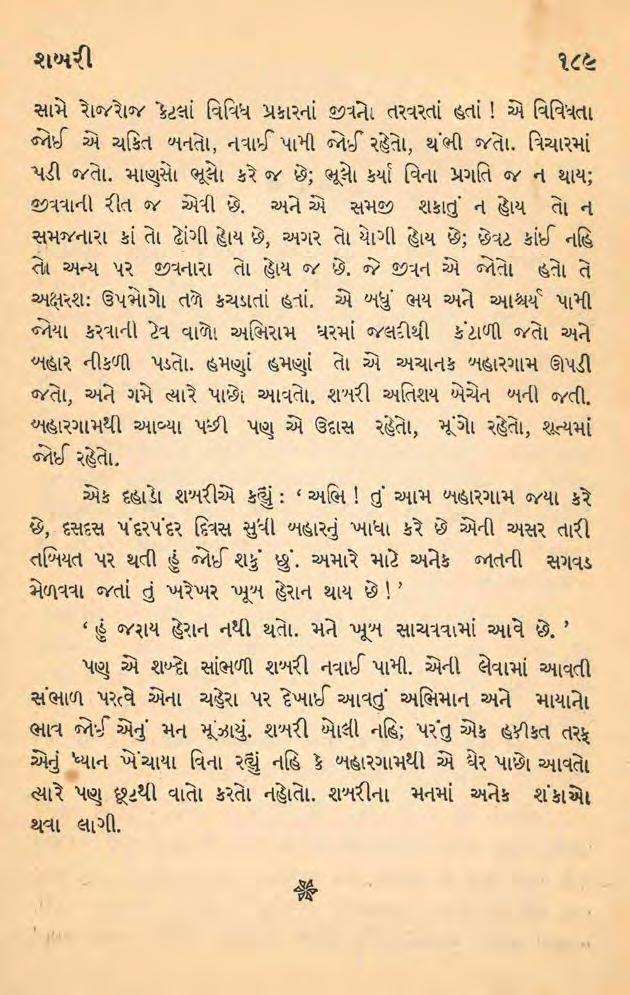 શબરી ૧૮૯
સામે રોજરોજ કેટલાં વિવિધ પ્રકારનાં જીવનો તરવરતાં હતાં ! એ વિવિધતા
જોઈ એ ચકિત બનતો, નવાઈ પામી જોઈ રહેતો, થંભી જતો. વિચારમાં
પડી જતો. માણસો ભૂલો કરે જ છે; ભૂલો કર્યા વિના પ્રગતિ જ ન થાય;
જીવવાની રીત જ એવી છે. અને એ સમજી શકાતું ન હોય તો ન
સમજનારા કાં તો ઢોંગી હોય છે, અગર તો યોગી હોય છે; છેવટ કાંઈ નહિ
તો અન્ય પર જીવનારા તો હોય જ છે. જે જીવન એ જોતો હતો તે
અક્ષરશઃ ઉપભોગો તળે કચડાતાં હતાં. એ બધું ભય અને આશ્ચર્ય પામી
જોયા કરવાની ટેવ વાળો અભિરામ ઘરમાં જલદીથી કંટાળી જતો અને
બહાર નીકળી પડતો. હમણાં હમણાં તો એ અચાનક બહારગામ ઊપડી
જતો, અને ગમે ત્યારે પાછો આવતો. શબરી અતિશય બેચેન બની જતી.
બહારગામથી આવ્યા પછી પણ એ ઉદાસ રહેતો, મૂંગો રહેતો, શૂન્યમાં
જોઈ રહેતો.
એક દહાડો શબરીએ કહ્યું : ‘ અભિ ! તું આમ બહારગામ જયા કરે
છે, દસદસ પંદરપંદર દિવસ સુધી બહારનું ખાધા કરે છે એની અસર તારી
તબિયત પર થતી હું જોઈ શકું છું. અમારે માટે અનેક જાતની સગવડ
મેળવવા જતાં તું ખરેખર ખૂબ હેરાન થાય છે ! ’
‘ હું જરાય હેરાન નથી થતો. મને ખૂબ સાચવવામાં આવે છે. ’
પણ એ શબ્દો સાંભળી શબરી નવાઈ પામી. એની લેવામાં આવતી
સંભાળ પરત્વે એના ચહેરા પર દેખાઈ આવતું અભિમાન અને માયાનો
ભાવ જોઈ એનું મન મૂંઝાયું. શબરી બોલી નહિ; પરંતુ એક હકીકત તરફ
એનું ધ્યાન ખેંચાયા વિના રહ્યું નહિ કે બહારગામથી એ ઘેર પાછો આવતો
ત્યારે પણ છૂટથી વાતો કરતો નહોતો. શબરીના મનમાં અનેક શંકાઓ
થવા લાગી.